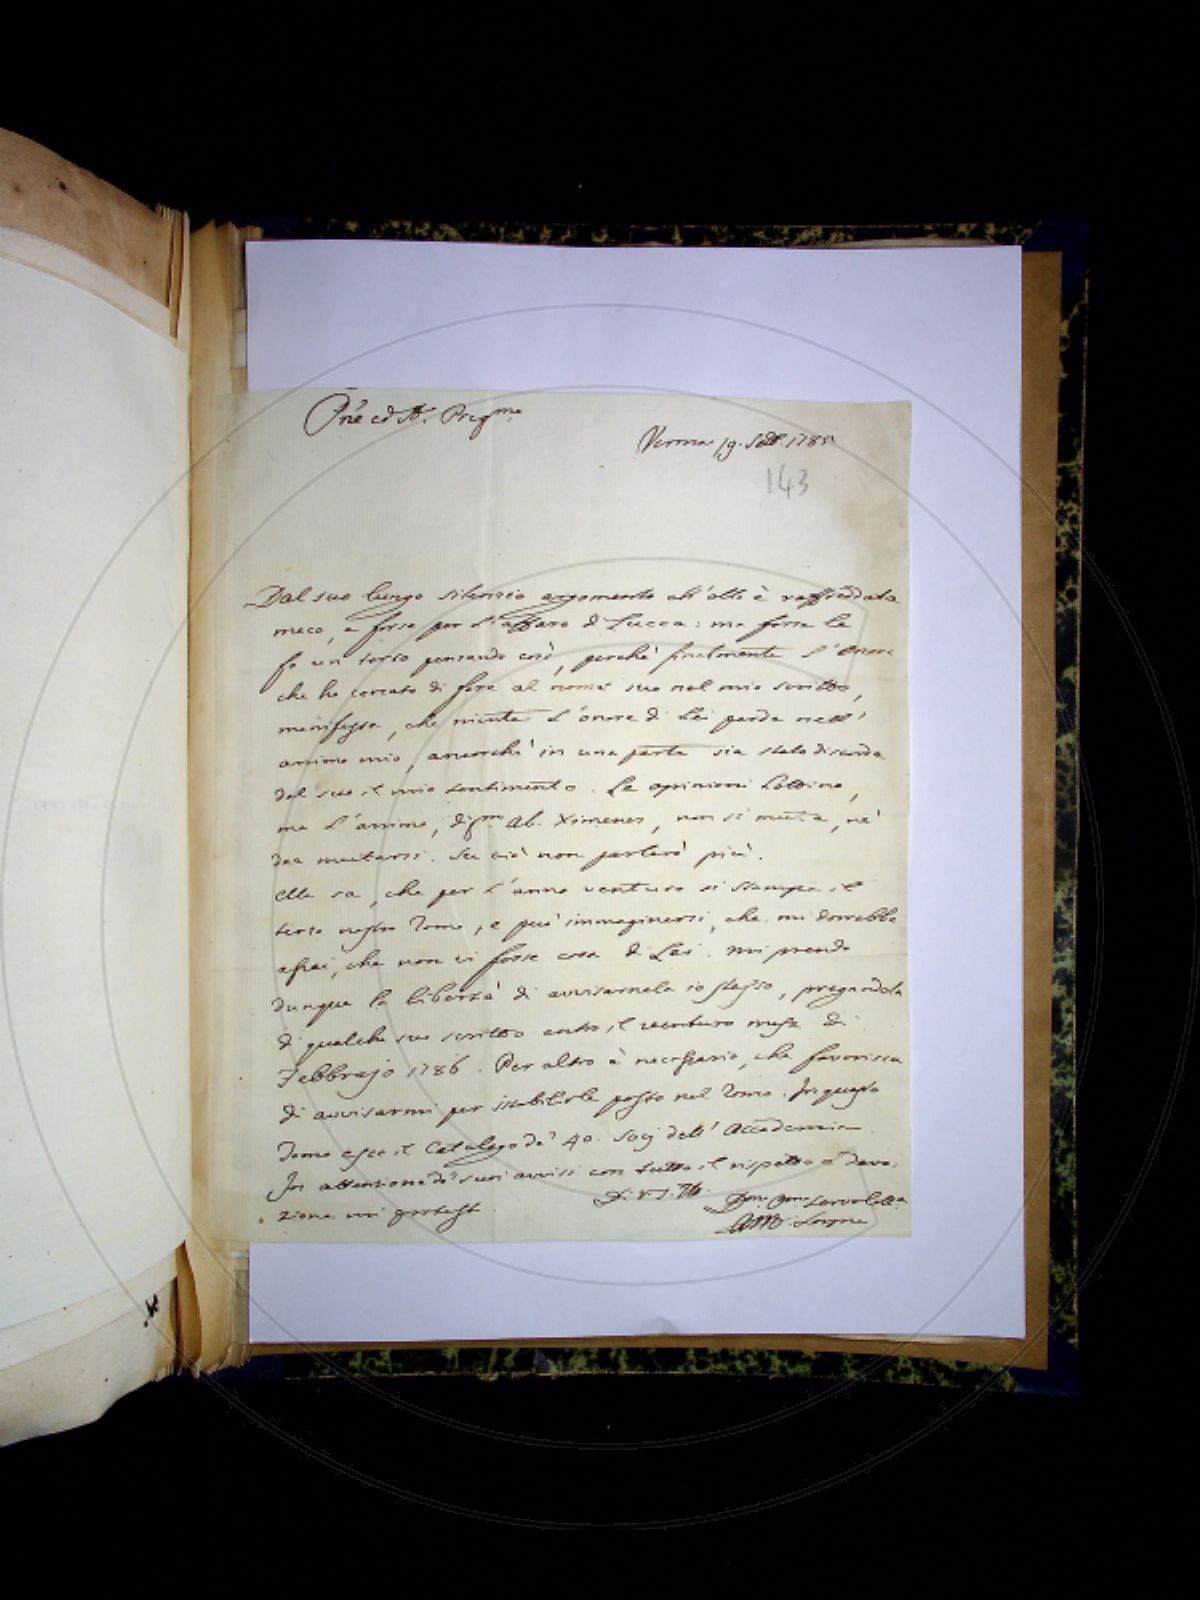 Pr͂ne ed A. Pregmo
Verona 19. Sett. 1785
143
Dal suo lungo silenzio argomento ch'ella è raffreddata
meco, e forse per l'affare di Lucca: ma forse le
fo un torto pensando così, perchè finalmente l'onore
che ho cercato di fare al nome suo nel mio scritto,
manifesta, che niente l'onore di Lei perde nell'
animo mio, ancorchè in una parte sia stato discorde
dal suo il mio sentimento. Le opinioni
ma l'animo, Sigr. Ab. Ximenes, non si muta, nè
dee mutarsi. Su ciò non parlerò più.
Ella sa, che per l'anno venturo si stampa il
terzo nostro Tomo, e può immaginarsi, che mi dorrebbe
assai, che non vi fosse cosa di Lei. Mi prendo
dunque la libertà di avvisarnela io stesso, pregandola
di qualche suo scritto entro il venturo mese di
Febbrajo 1786. Per altro è necessario, che favorisca
di avvisarmi per istabilirle posto nel Tomo. In questo
Tomo esce il Catalogo de' 40. Socj dell' Accademia.
In attenzione de' suoi avvisi con tutto il rispetto e devo-
zione mi protesto
Di V. S. Ill.
Devmo Servo
AM. Lorgna